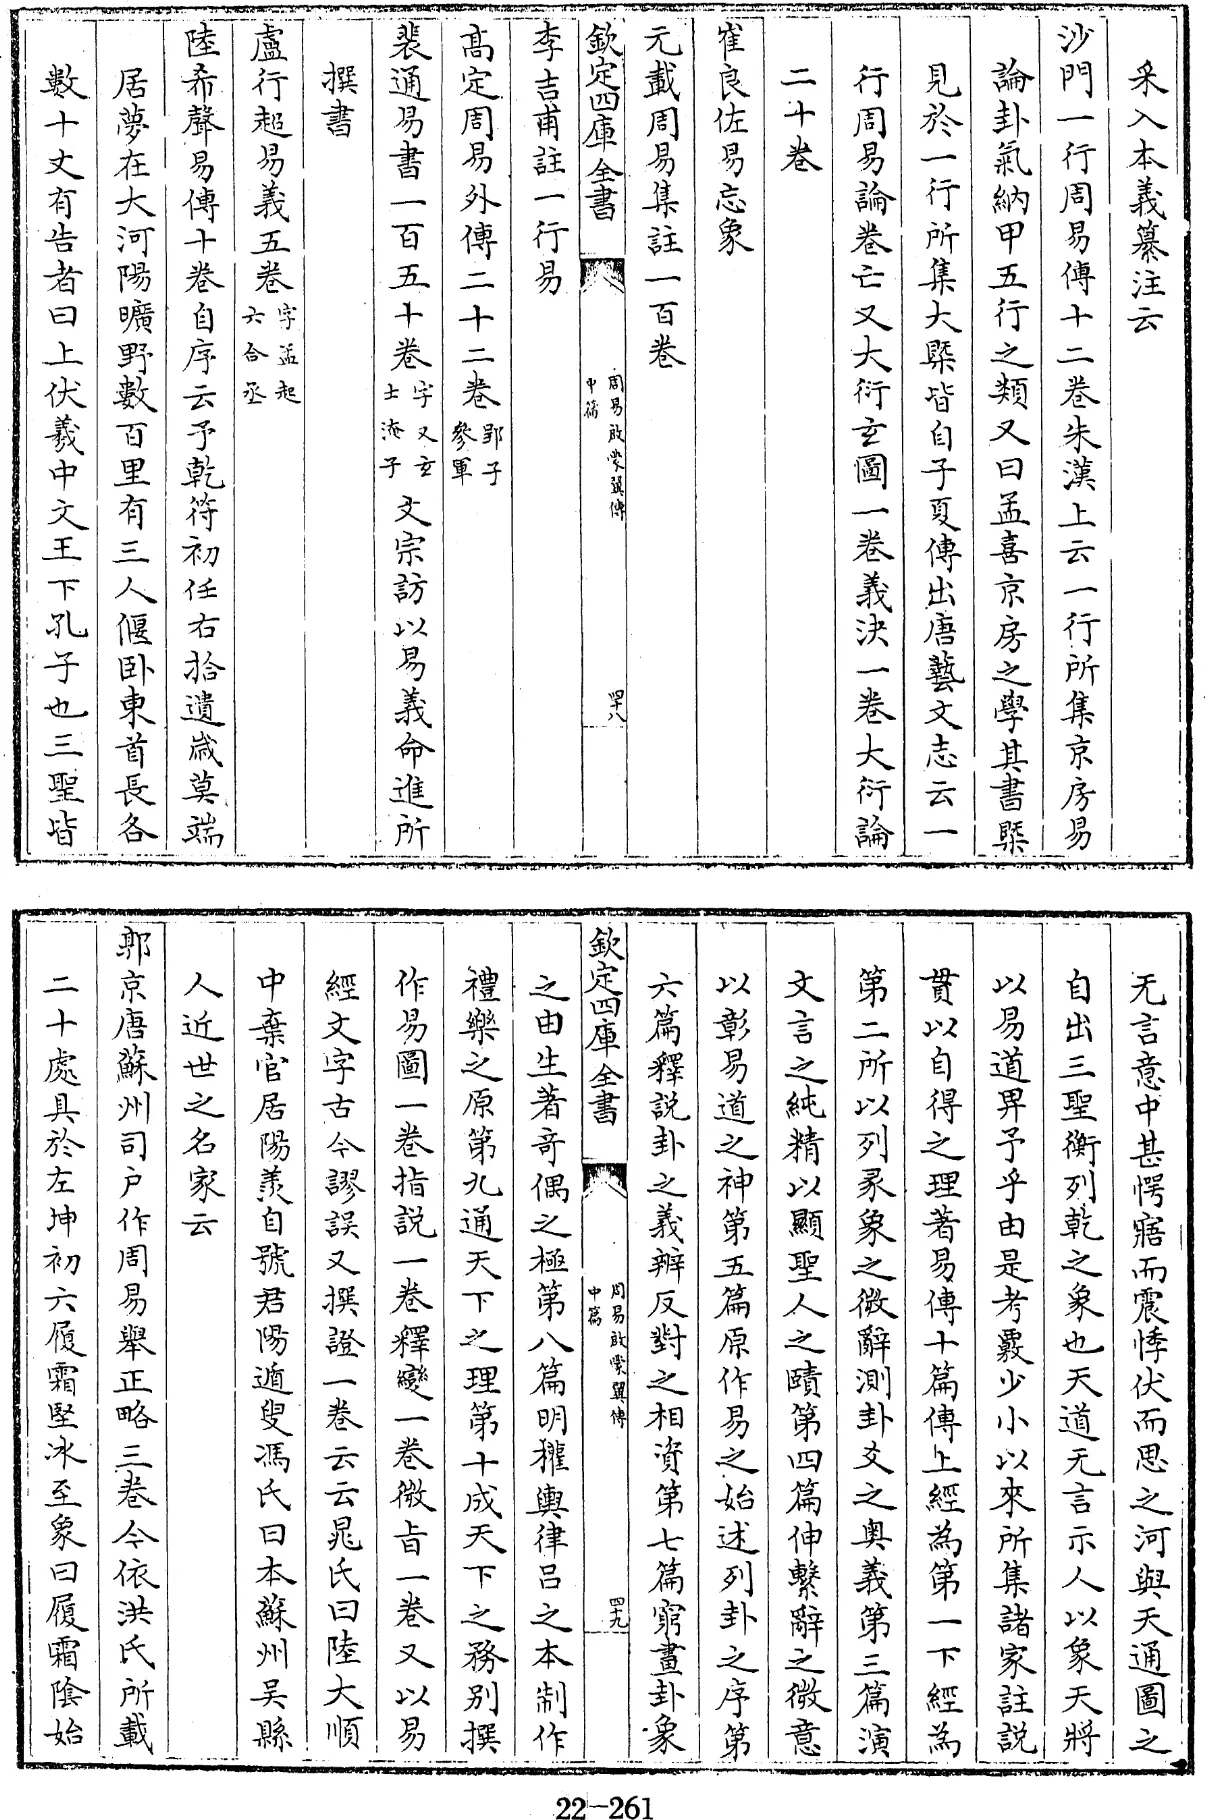 采入本義纂注云
沙門一行周易傳十二卷朱漢上云一行所集京房易
論卦氣納甲五行之類又曰孟喜京房之學其書槩
見於一行所集大槩皆自子夏傳出唐藝文志云一
行周易論卷亡又大衍玄圖一卷義決一卷大衍論
二十卷
崔良佐易忘象
元載周易集註一百卷
欽定四庫全書 周易啟蒙翼傳 中篇 四十八
李吉甫註一行易
高定周易外傳二十二卷郢子參軍
裴通易書一百五十卷字又玄士淹子文宗訪以易義命進所
撰書
盧行超易義五卷字孟起六合丞
陸希聲易傳十卷自序云予乾符初任右拾遺歲莫端
居夢在大河陽曠野數百里有三人偃卧東首長各
數十丈有告者曰上伏羲中文王下孔子也三聖皆
无言意中甚愕寤而震悸伏而思之河與天通圖之
自出三聖衡列乾之象也天道无言示人以象天將
以易道畀予乎由是考覈少小以來所集諸家註說
貫以自得之理著易傳十篇傳上經為第一下經為
第二所以列彖象之微辭測卦爻之奧義第三篇演
文言之純精以顯聖人之賾第四篇伸繫辭之微意
以彰易道之神第五篇原作易之始述列卦之序第
六篇釋說卦之義辨反對之相資第七篇窮畫卦象
欽定四庫全書 周易啟蒙翼傳 中篇 四十九
之由生著竒偶之極第八篇明權輿律呂之本制作
禮樂之原第九通天下之理第十成天下之務別撰
作易圖一卷指說一卷釋變一卷微旨一卷又以易
經文字古今謬誤又撰證一卷云云晁氏曰陸大順
中棄官居陽羨自號君陽遁叟馮氏曰本蘇州吴縣
人近世之名家云
郭京唐蘇州司户作周易舉正略三卷今依洪氏所載
二十處具於左坤初六履霜堅冰至象曰履霜陰始
22-261